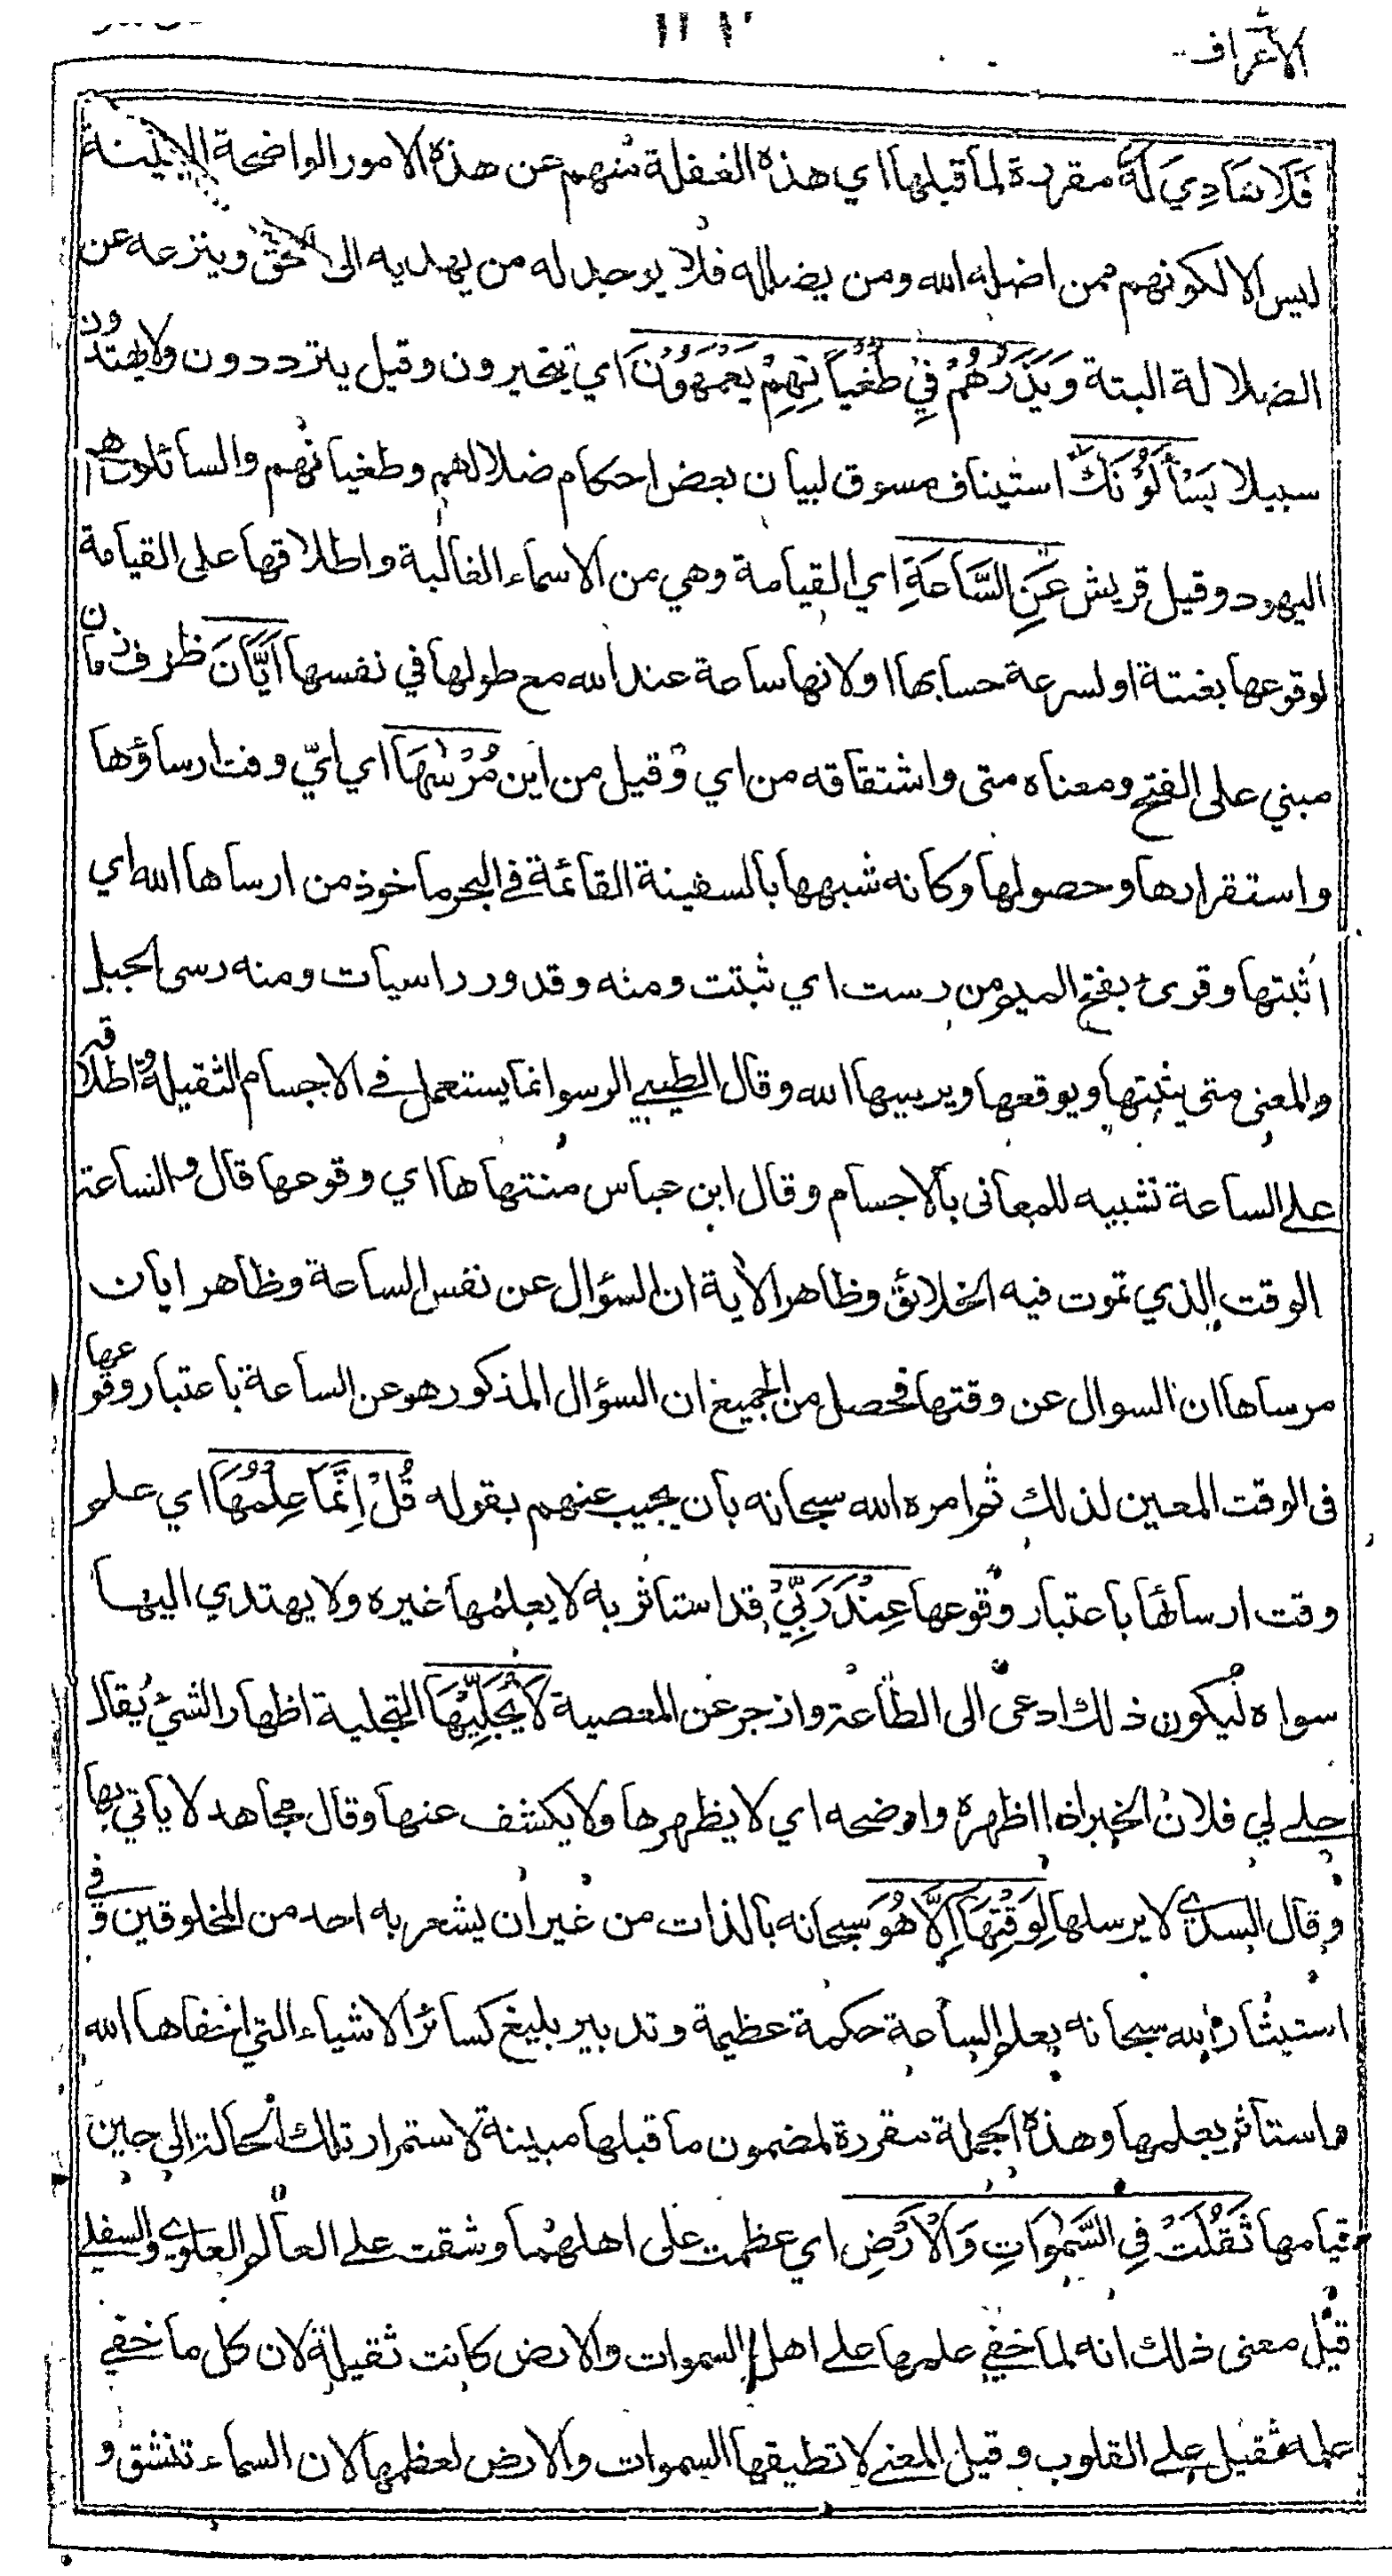 الأعراف
فَلَا هَادِيَ لَهُ مقررة لما قبلها اي هذه الغفلة منهم عن هذه الامور الواضحة البينة
ليس الا لكونهم ممن اضله الله ومن يضلله فلا يوجد له من يهديه الى الحق وينزعه عن
الضلالة البتة وَيَذَرُهُمْ فِي طُغْيَانِهِمْ يَعْمَهُوْنَ اي يتحيرون وقيل يترددون ولا يهتدون
سبيلا يَسْأَلُوْنَكَ استيناف مسوق لبيان بعض احكام ضلالهم وطغيانهم والسائلون هم
اليهود وقيل قريش عَنِ السَّاعَةِ اي القيامة وهي من الاسماء الغالبة واطلاقها على القيامة
لوقوعها بغتة او لسرعة حسابها او لانها ساعة عند الله مع طولها في نفسها اَيَّانَ ظرف زمان
مبني على الفتح ومعناه متى واشتقاقه من اي وقيل من اين مُرْسٰهَا اي ايّ وقت ارساؤها
واستقرارها وحصولها وكانه شبهها بالسفينة القائمة في البحر ماخوذ من ارساها الله اي
اثبتها وقرئ بفتح الميم من رست اي ثبتت ومنه وقدور راسيات ومنه رسى الجبل
والمعنى متى يثبتها ويوقعها ويرسيها الله وقال الطيبي الرسو انما يستعمل في الاجسام الثقيلة واطلاقه
على الساعة تشبيه للمعاني بالاجسام وقال ابن عباس منتهاها اي وقوعها قال والساعة
الوقت الذي تموت فيه الخلائق وظاهر الاية ان السؤال عن نفس الساعة وظاهر ايان
مرساها ان السوال عن وقتها فحصل من الجميع ان السؤال المذكور هو عن الساعة باعتبار وقوعها
في الوقت المعين لذلك ثم امره الله سبحانه بان يجيب عنهم بقوله قُلْ اِنَّمَا عِلْمُهَا اي علم
وقت ارسائها باعتبار وقوعها عِنْدَ رَبِّيْ قد استاثر به لا يعلمها غيره ولا يهتدي اليها
سواه ليكون ذلك ادعى الى الطاعة وازجر عن المعصية لَا يُجَلِّيْهَا التجلية اظهار الشيء يقال
جلى لي فلان الخبر اذا اظهره واوضحه اي لا يظهرها ولا يكشف عنها وقال مجاهد لا ياتي بها
وقال السدي لا يرسلها لِوَقْتِهَا اِلَّا هُوَ سبحانه بالذات من غير ان يشعر به احد من المخلوقين وفي
استيثار الله سبحانه بعلم الساعة حكمة عظيمة وتدبير بليغ كسائر الاشياء التي اخفاها الله
واستاثر بعلمها وهذه الجملة مقررة لمضمون ما قبلها مبينة لاستمرار تلك الحالة الى حين
قيامها ثَقُلَتْ فِي السَّمٰوَاتِ وَالْاَرْضِ اي عظمت على اهلهما وشقت على العالم العلوي والسفلي
قيل معنى ذلك انه لما خفي علمها على اهل السموات والارض كانت ثقيلة لان كل ما خفي
علمه ثقيل على القلوب وقيل المعنى لا تطيقها السموات والارض لعظمها لان السماء تنشق و